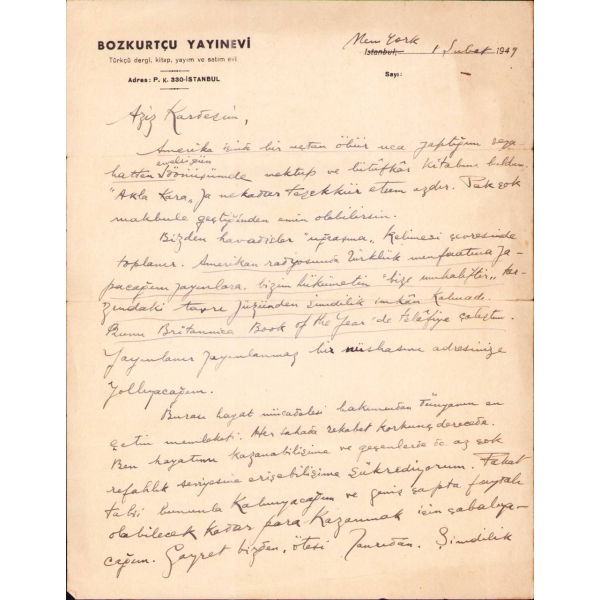 BOZKURTÇU YAYINEVİ
Türkçü dergi, kitap, yayım ve satım evi
Adres: P. K. 330-İSTANBUL
New York
İstanbul, 1 Şubat 1949
Sayı:
Aziz Kardeşim,
Amerika içinde bir uçtan öbür uca yaptığım seya-
hatten döndüğümde mektup ve lütüfkâr kitabını buldum.
"Akla Kara" ya nekadar teşekkür etsem azdır. Pek çok
makbule geçtiğinden emin olabilirsin.
Bizden havadisler "uğraşma" kelimesi çevresinde
toplanır. Amerikan radyosunda Türklük menfaatına ya-
pacağım yayınlara, bizim hükümetin "bize muhaliftir" tar-
zındaki tavrı yüzünden şimdilik imkân kalmadı.
Bunu Britannica Book of the Year'de telâfiye çalıştım.
Yayınlanır yayınlanmaz bir nüshasını adresinize
yollıyacağım.
Burası hayat mücadelesi bakımından dünyanın en
çetin memleketi. Her sahada rekabet korkunç derecede.
Ben hayatımı kazanabildiğime ve geçenlerde az çok
refahlık seviyesine erişebildiğime şükrediyorum. Fakat
tabiî bununla kalmıyacağım ve geniş çapta faydalı
olabilecek kadar para kazanmak için çabalıya-
cağım. Gayret bizden, ötesi Tanrıdan. Şimdilik